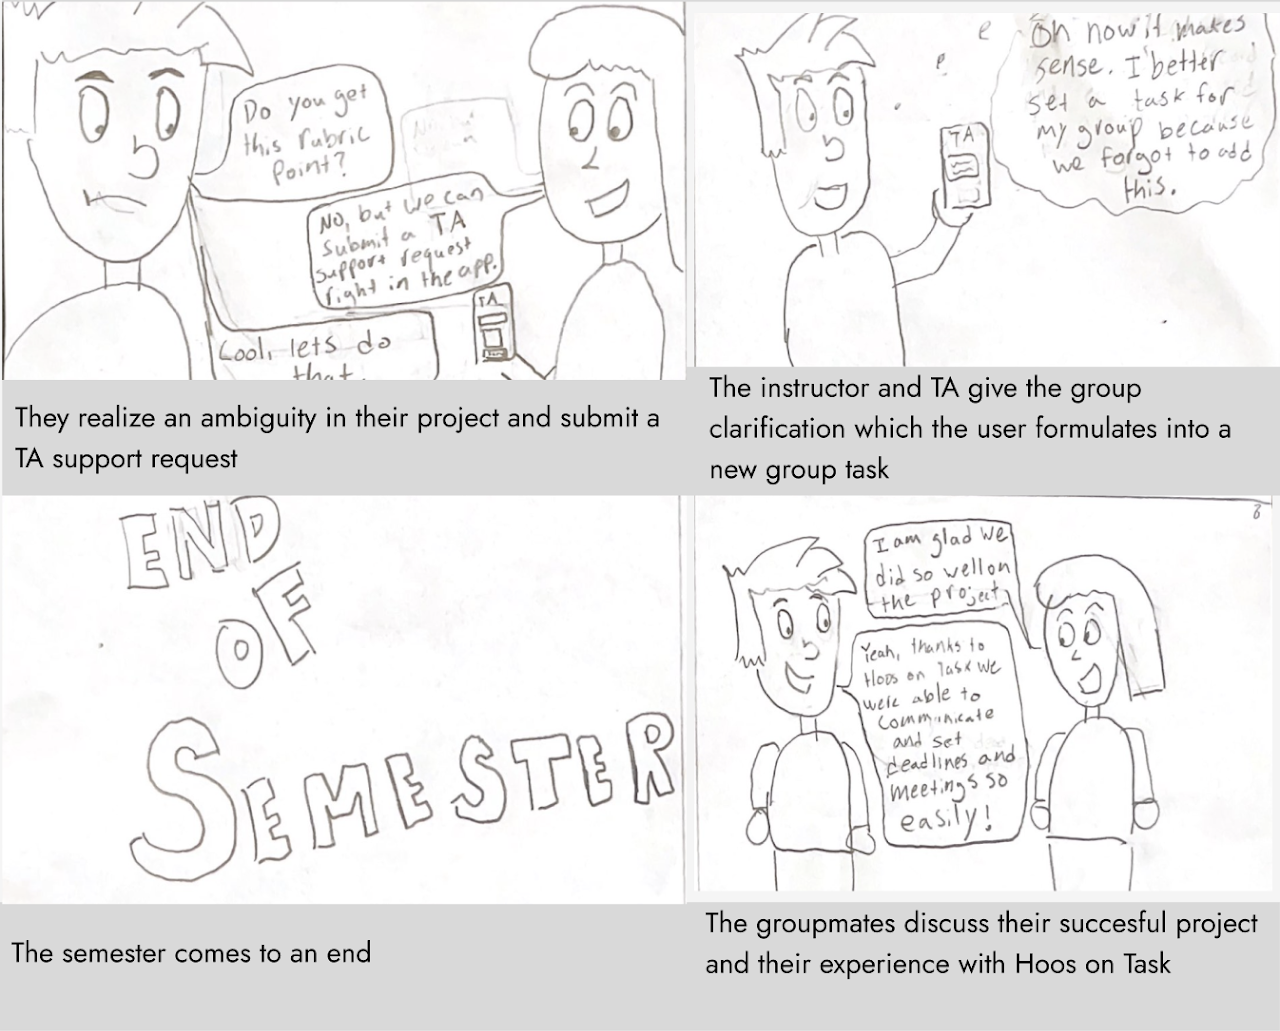 Do you get
this rubric
Point?
No, but we can
submit a TA
support request
right in the app.
TA
Cool, lets do
that.
They realize an ambiguity in their project and submit a
TA support request
Oh now it makes
sense. I better
set a task for
my group because
we forgot to add
this.
TA
The instructor and TA give the group
clarification which the user formulates into a
new group task
END
OF
SEMESTER
The semester comes to an end
8
I am glad we
did so well on
the project
Yeah, thanks to
Hoos on Task we
were able to
communicate
and set
deadlines and
meetings so
easily!
The groupmates discuss their succesful project
and their experience with Hoos on Task